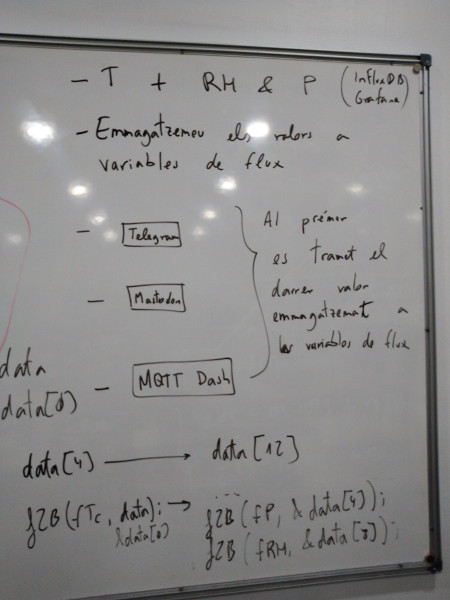 - T + RH & P (InfluxDB
Grafana)
- Emmagatzemeu els valors a
variables de flux
- Telegram
- Mastodon
- MQTT Dash
Al prémer
es tramet el
darrer valor
emmagatzemat a
les variables de flux
data
data[0]
data[4] → data[12]
f2B(fTc, data); →
&data[0]
....
f2B(fP, &data[4]);
f2B(fRH, &data[8]);